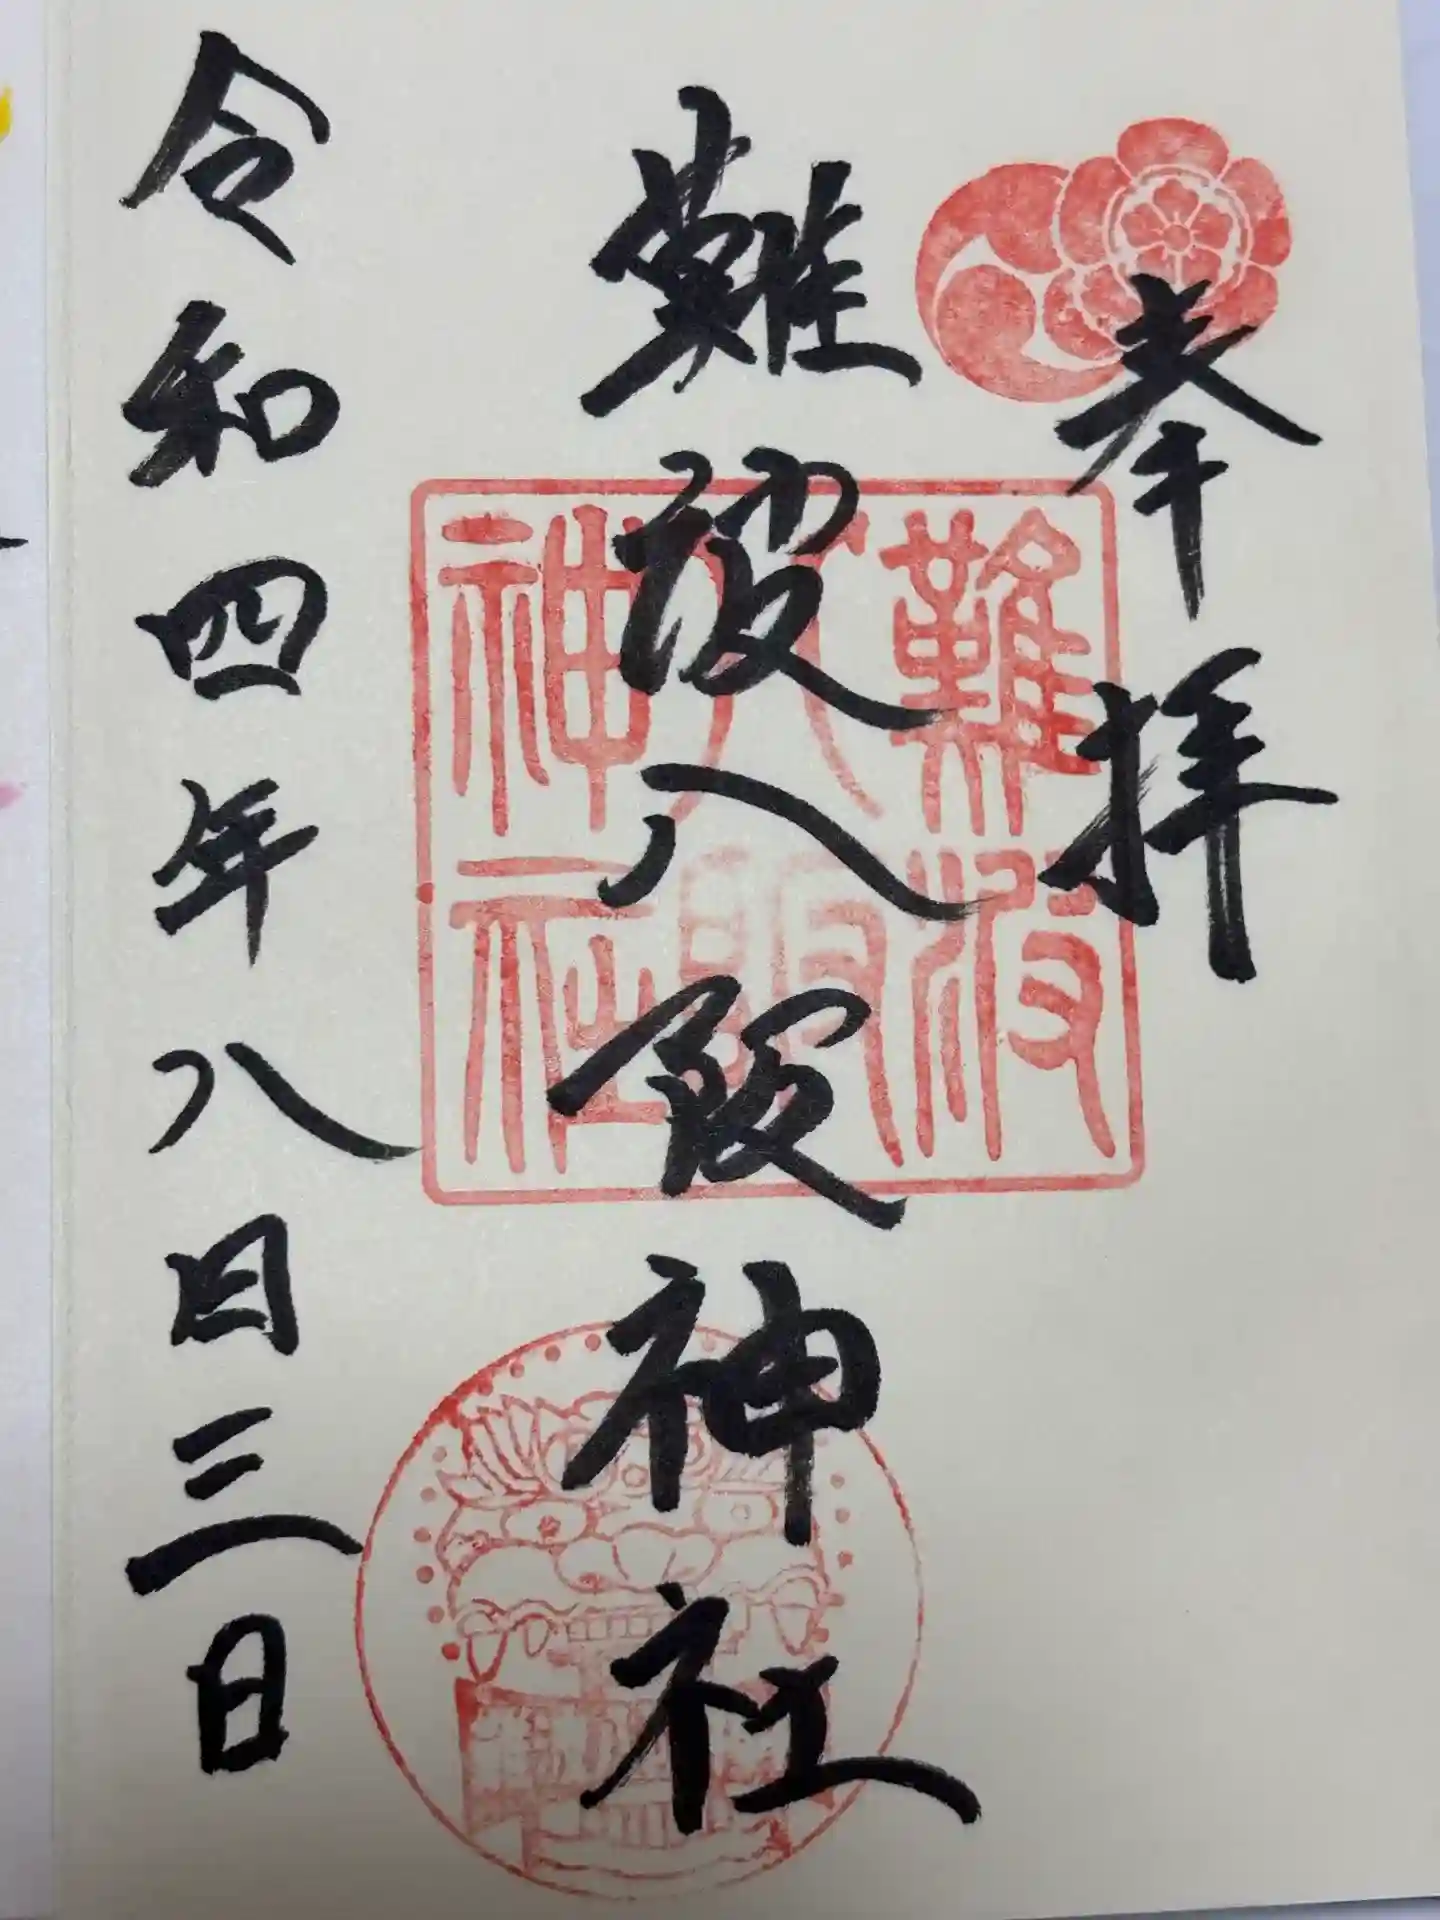 奉拝
難波八阪神社
難波八阪神社
令和四年八月三日